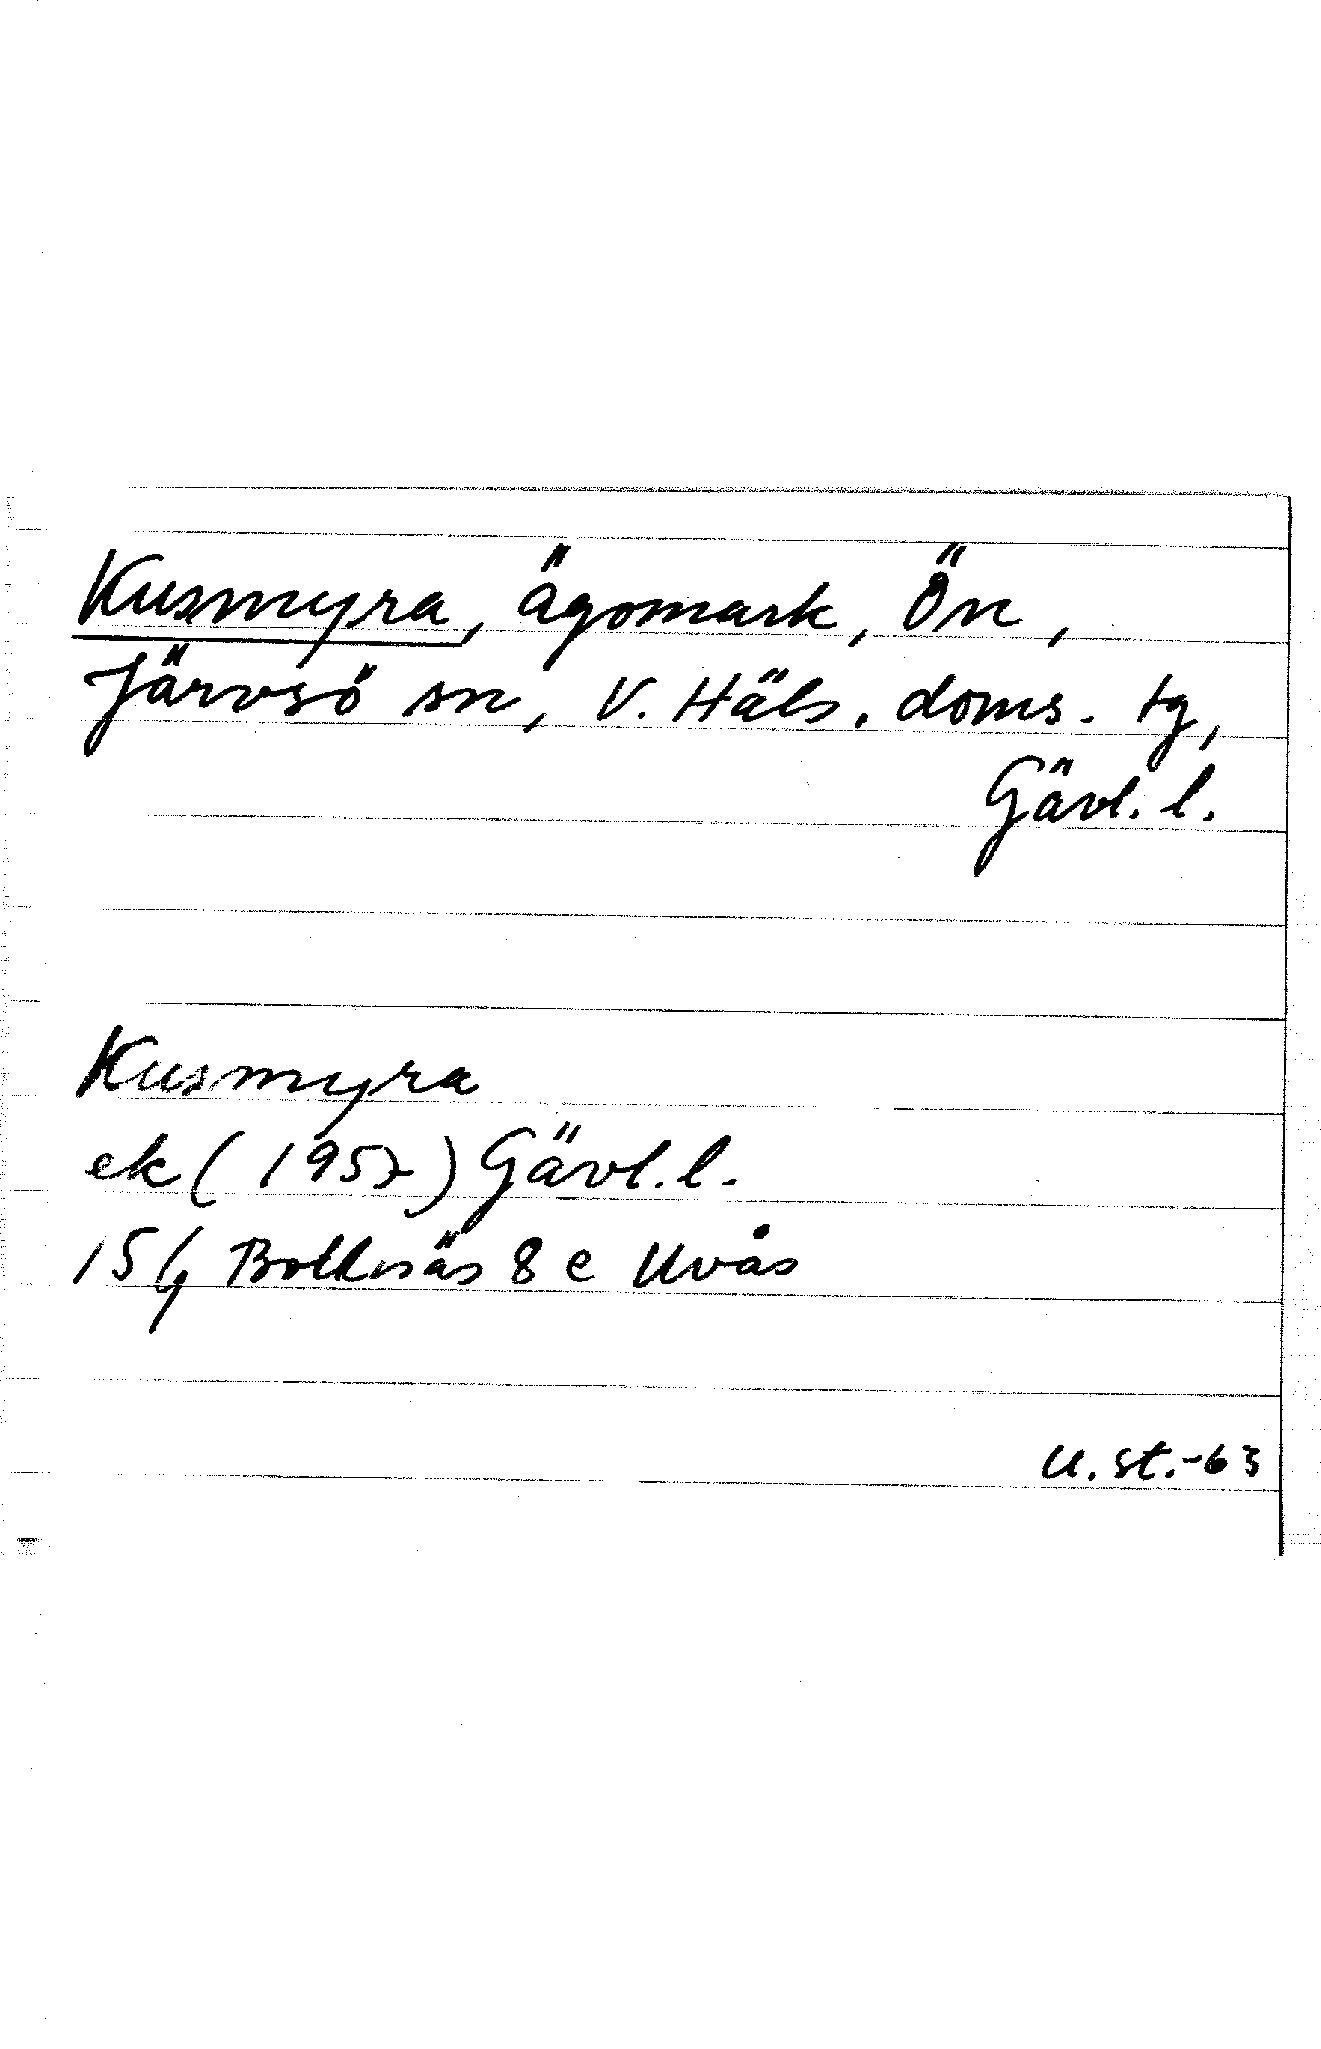 Kusmyra, ägomark, Ön,
Järvsö sn, V. Häls. doms. tg,
Gävl. l.
Kusmyra
ek (1957) Gävl. l.
15 G Bollnäs 8 e Uvås
U. st.-63